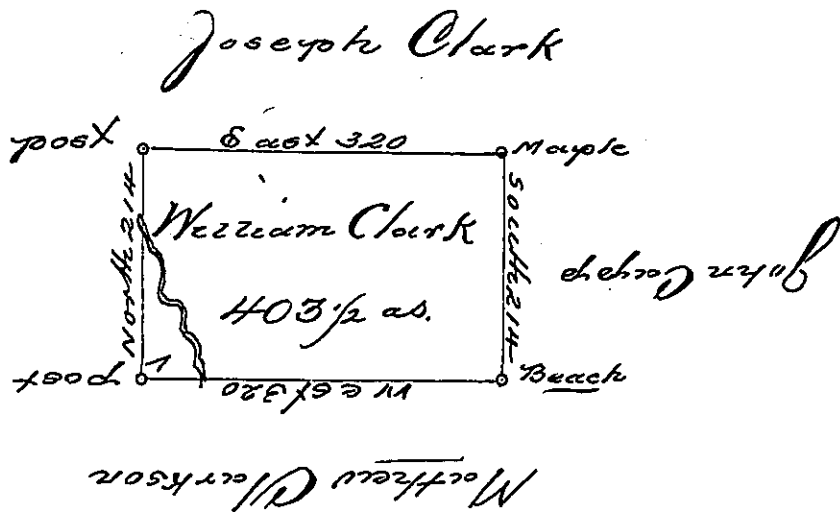 Joseph Clark
post
East 320
Maple
North 214
William Clark
South 214
403 1/2 as.
post
1
West 320
Beach
Matthew Clarkson